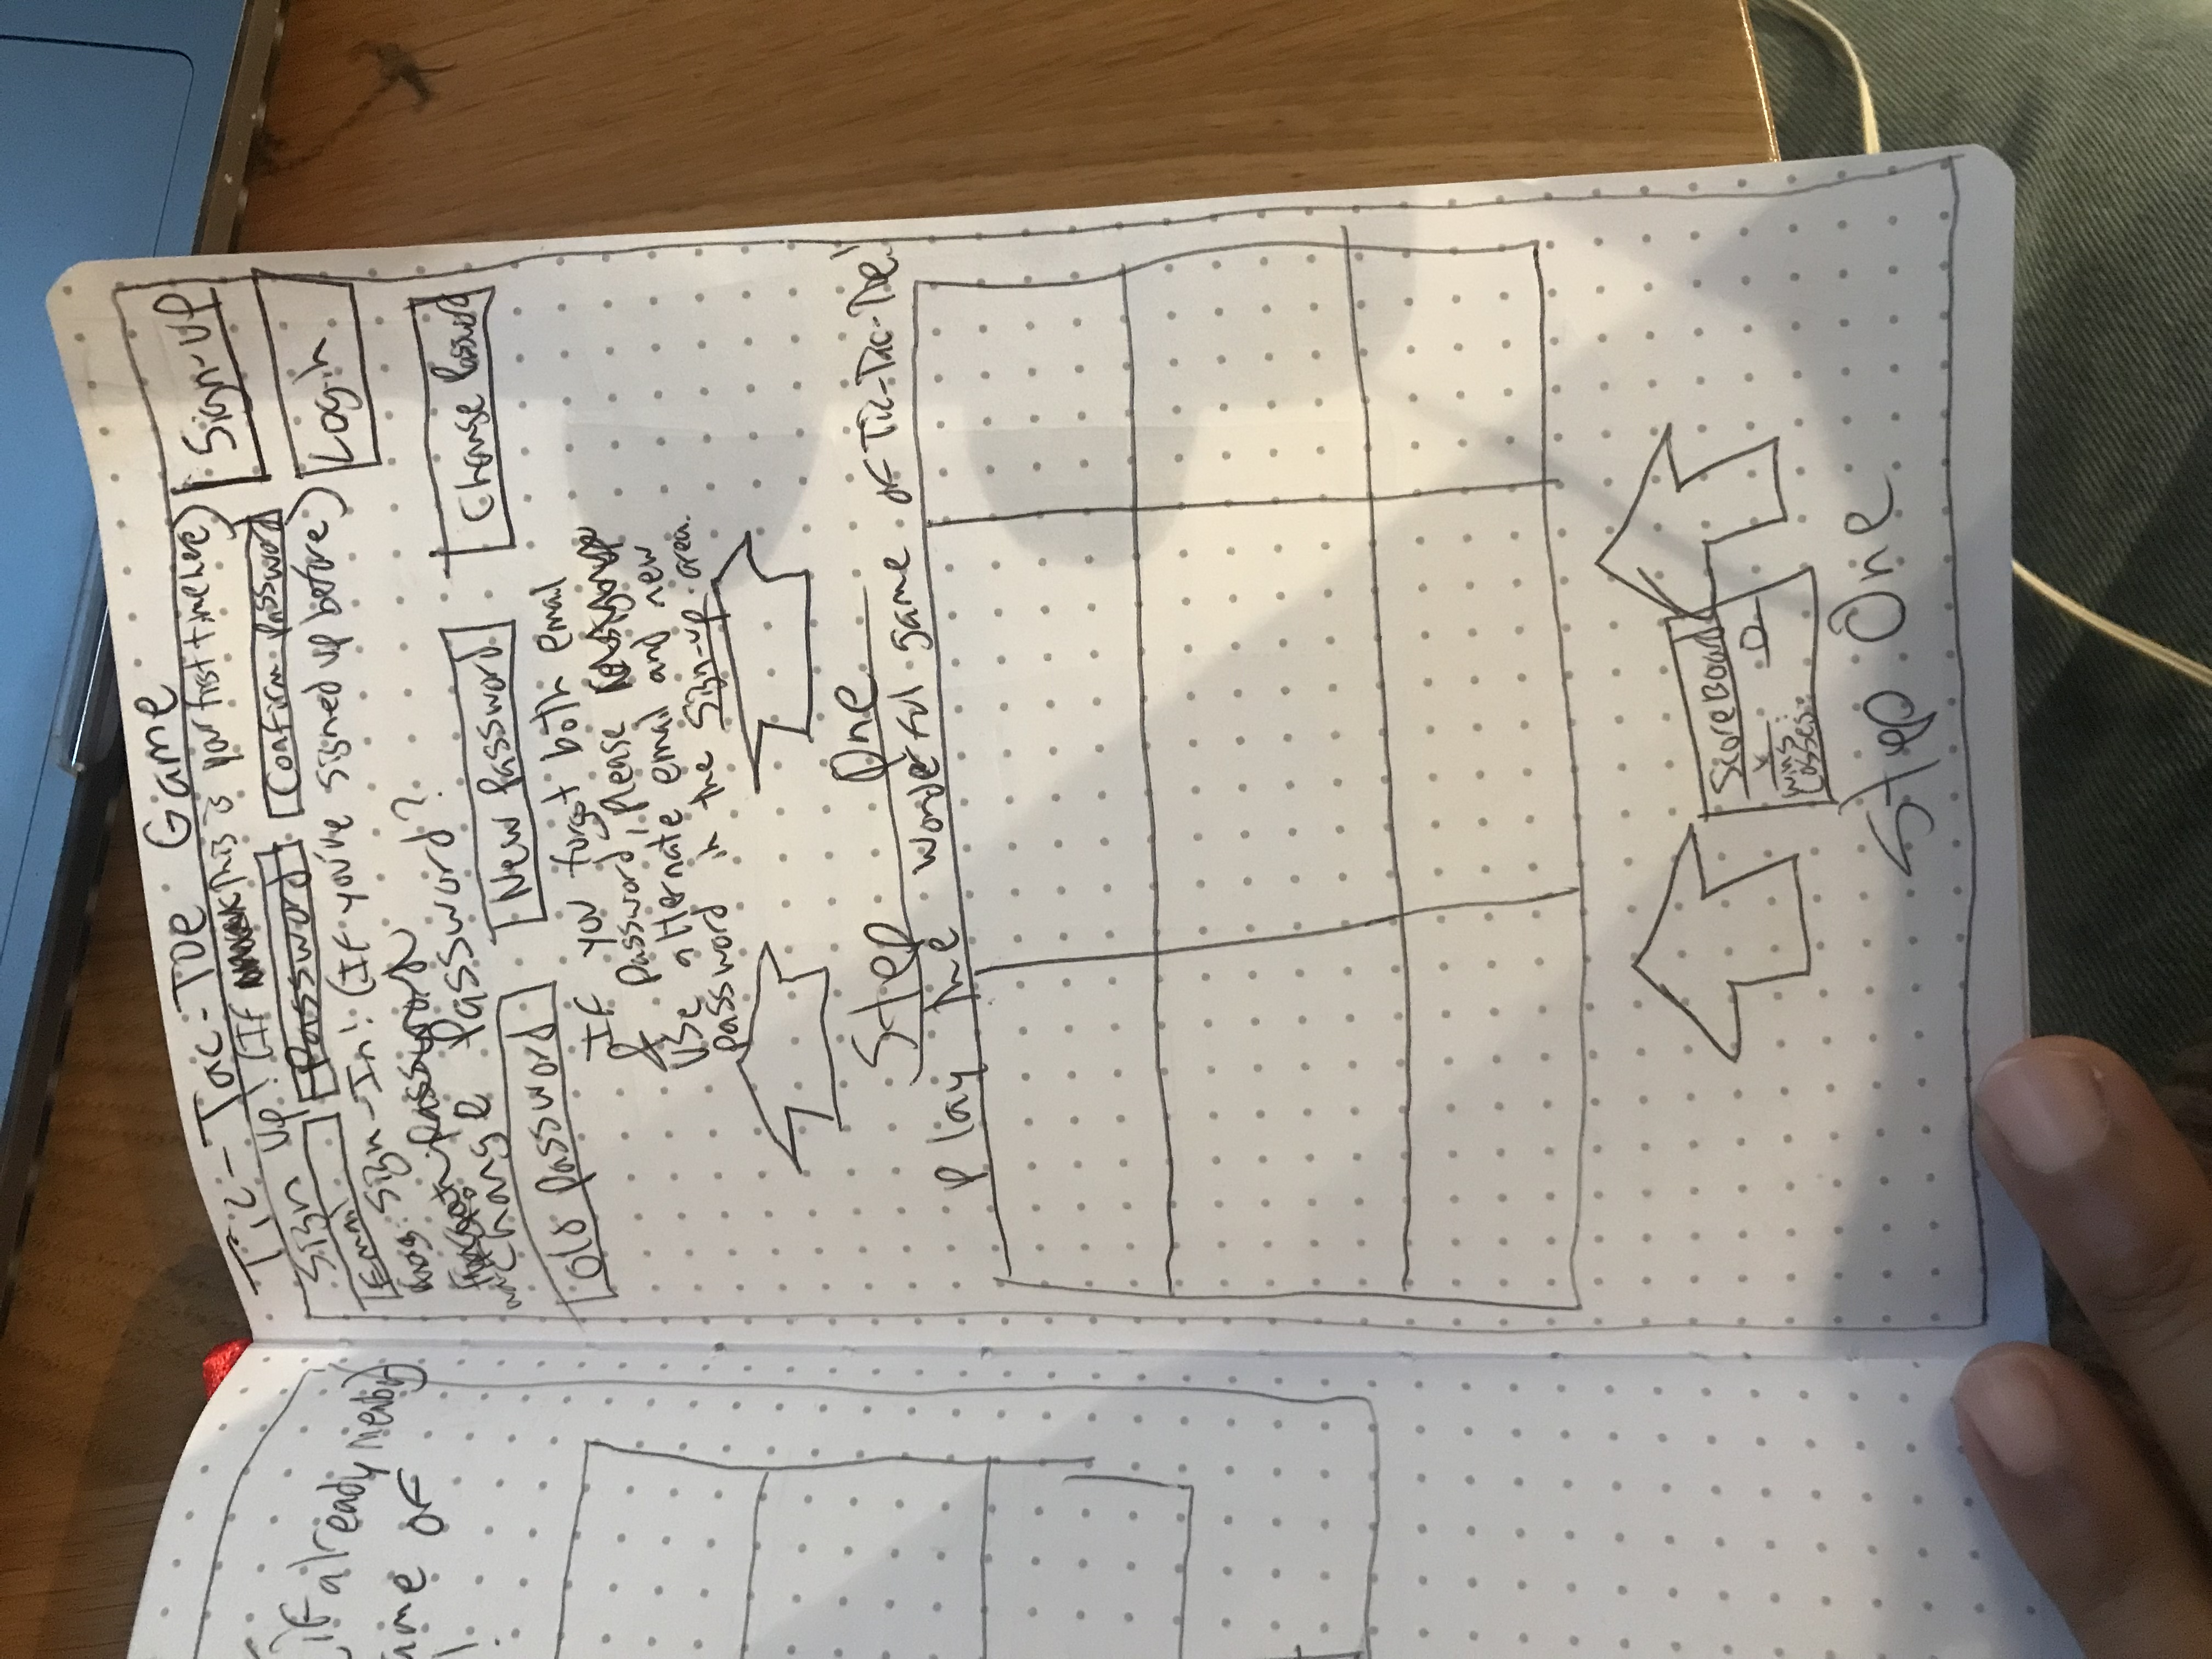 if already member)
ame of
!
Tic-Tac-Toe Game
Sign Up! (If This is your first time here)
Sign-up
Email
Password
Confirm Password
Sign-In! (If you've signed up before)
Login
Password
Change Password?
Old Password
New Password
Change Password
If you forgot both email
& Password, Please
Use alternate email and new
password in the Sign-up area.
Step One
Play the wonderful game of Tic-Tac-Toe!
ScoreBoard
X O
Wins:
Losses:
Step One